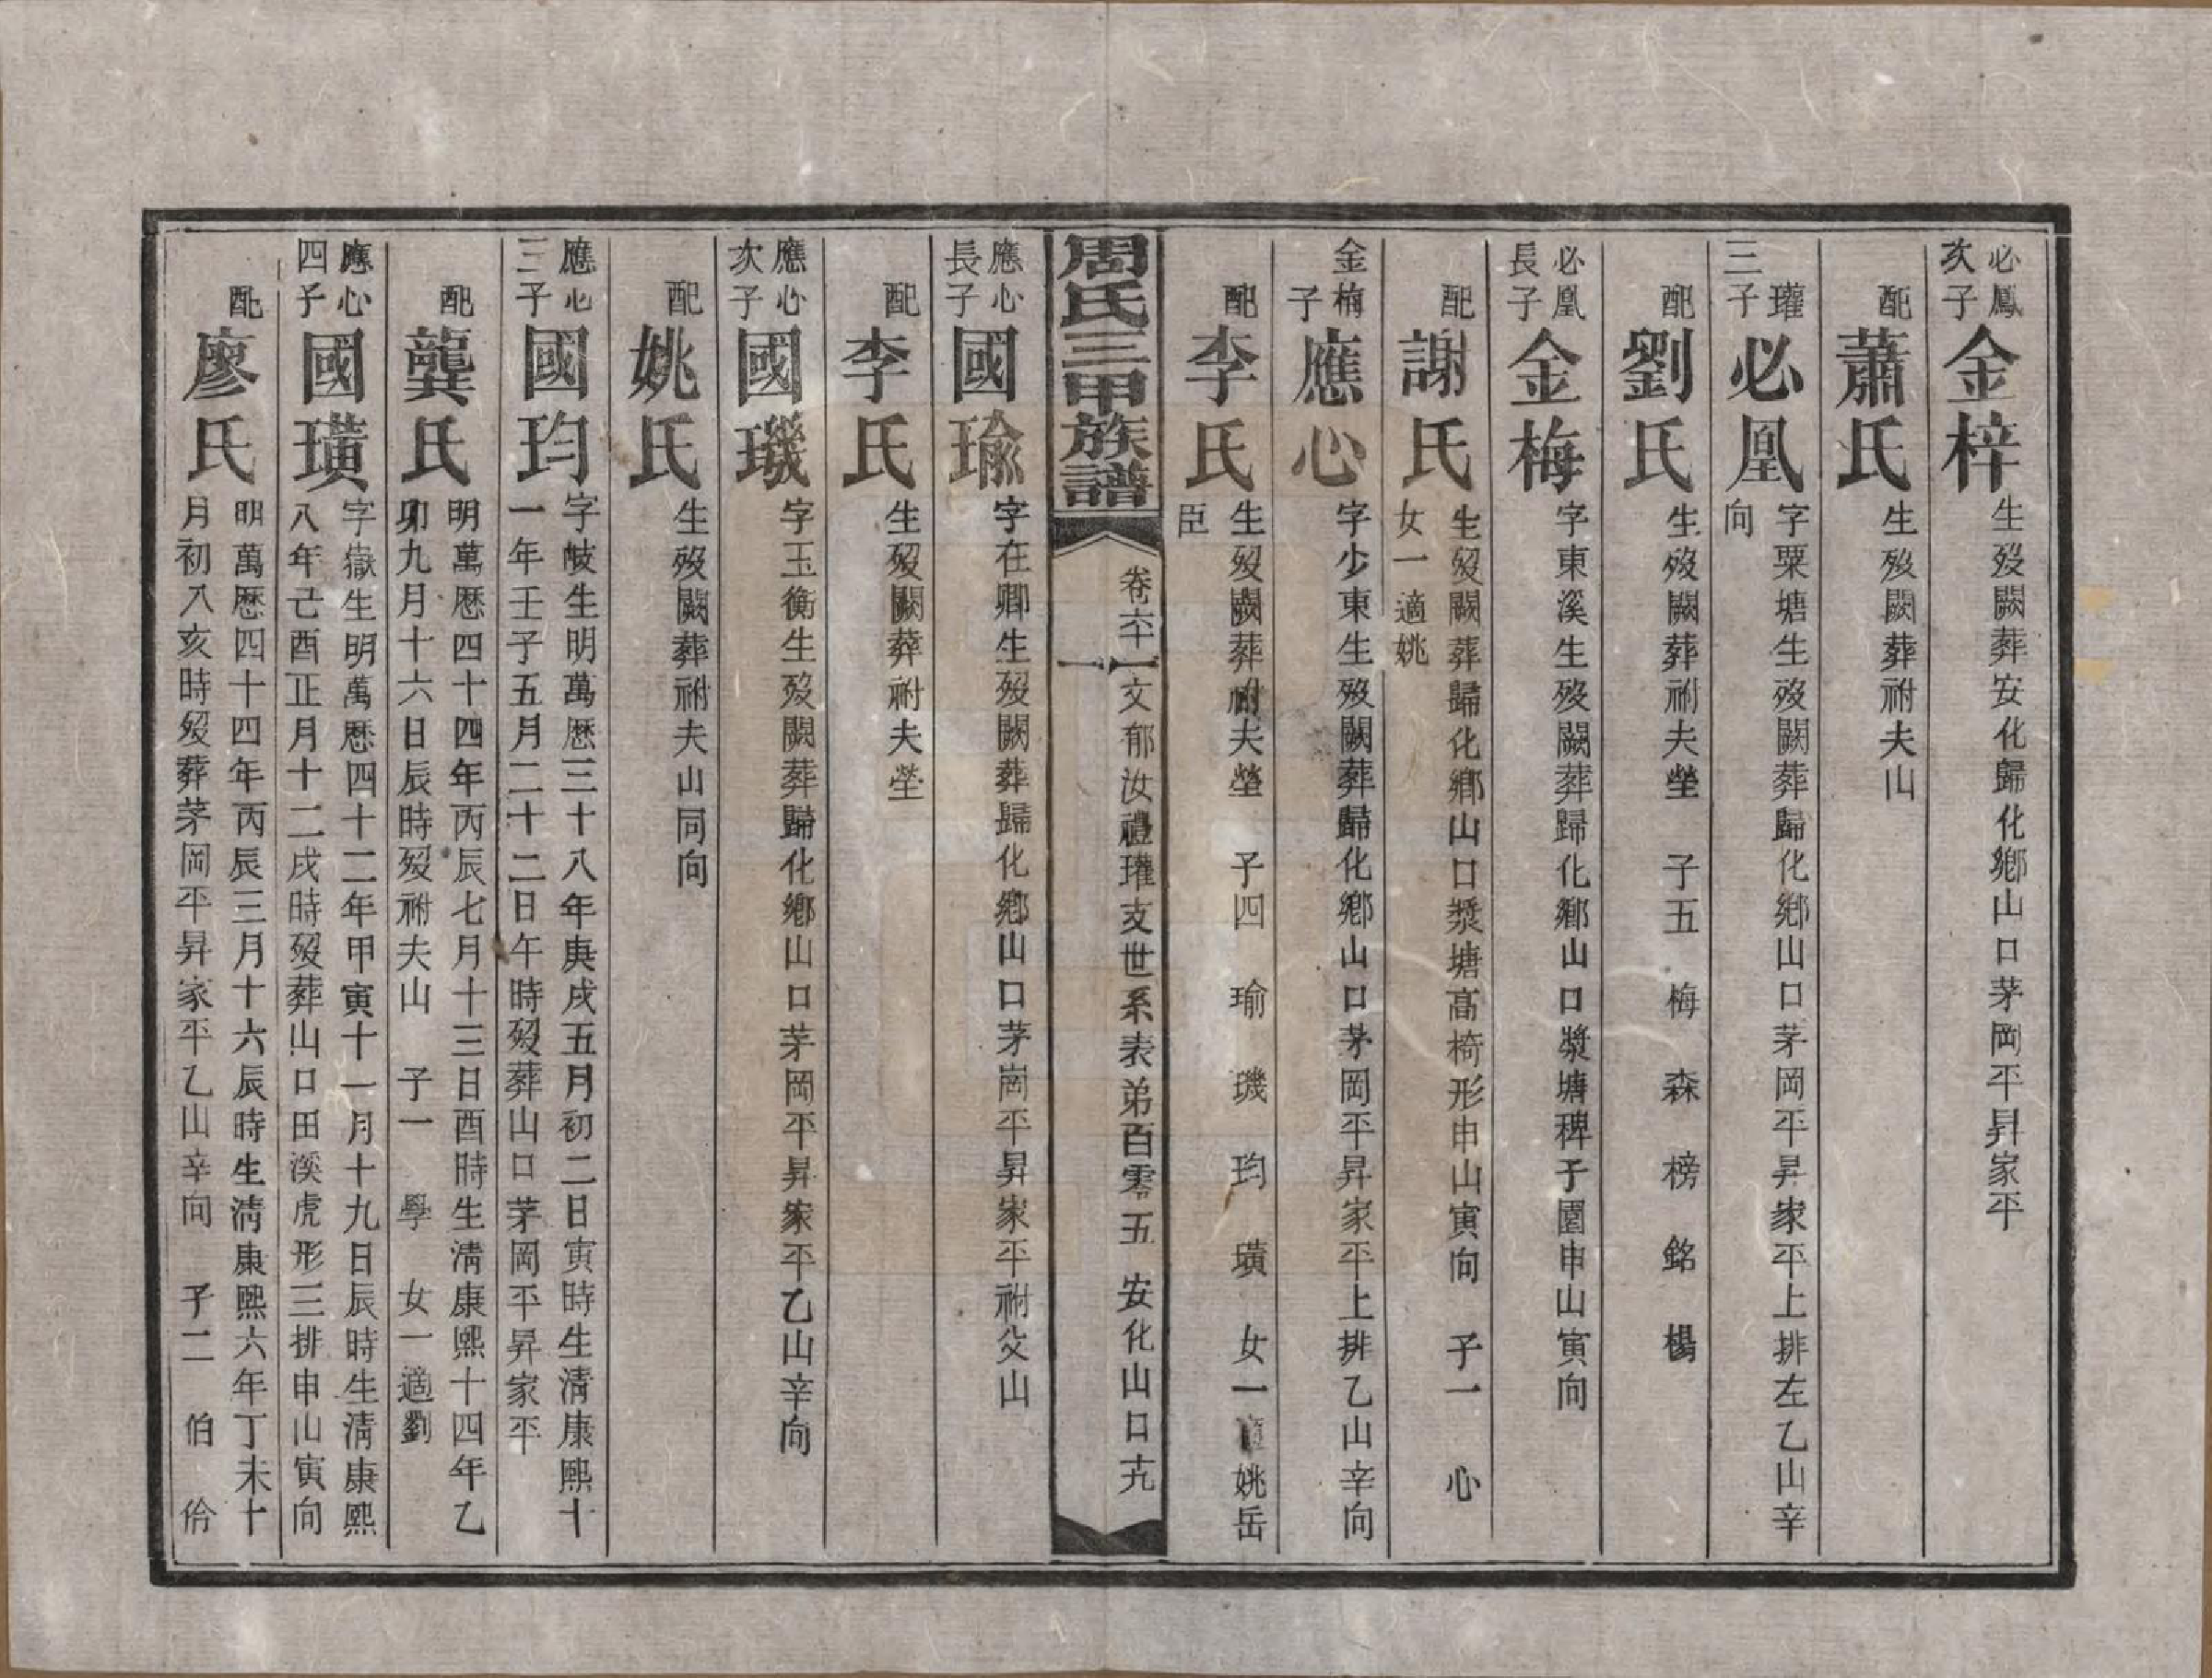 必鳳次子 金梓 生歿闕葬安化歸化鄉山口茅岡平昇家平
配 蕭氏 生歿闕葬祔夫山
瓘三子 必凰 字粟塘生歿闕葬歸化鄉山口茅岡平昇家平上排左乙山辛
向
配 劉氏 生歿闕葬祔夫塋 子五 梅 森 榜 銘 楊
必凰長子 金梅 字東溪生歿闕葬歸化鄉山口漿塘稗子園申山寅向
配 謝氏 生歿闕葬歸化鄉山口漿塘高椅形申山寅向 子一 心
女一適姚
金梅子 應心 字少東生歿闕葬歸化鄉山口茅岡平昇家平上排乙山辛向
配 李氏 生歿闕葬祔夫塋 子四 瑜 璣 均 璜 女一適姚岳
臣
周氏三甲族譜 卷六十一 文郁汝禮瓘支世系表弟百零五 安化山口 十九
應心長子 國瑜 字在卿生歿闕葬歸化鄉山口茅崗平昇家平祔父山
配 李氏 生歿闕葬祔夫塋
應心次子 國璣 字玉衡生歿闕葬歸化鄉山口茅岡平昇家平乙山辛向
配 姚氏 生歿闕葬祔夫山同向
應心三子 國均 字岐生明萬歷三十八年庚戌五月初二日寅時生清康熙十
一年壬子五月二十二日午時歿葬山口茅岡平昇家平
配 龔氏 明萬歷四十四年丙辰七月十三日酉時生清康熙十四年乙
卯九月十六日辰時歿祔夫山 子一 學 女一適劉
應心四子 國璜 字嶽生明萬歷四十二年甲寅十一月十九日辰時生清康熙
八年己酉正月十二戌時歿葬山口田溪虎形三排申山寅向
配 廖氏 明萬歷四十四年丙辰三月十六辰時生清康熙六年丁未十
月初八亥時歿葬茅岡平昇家平乙山辛向 子二 伯 佮